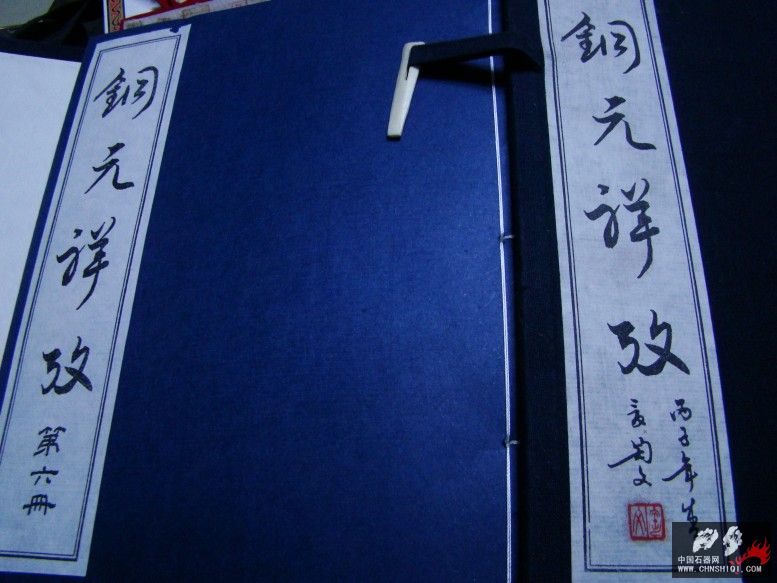 銅元詳攷
第六冊
銅元詳攷
丙子年
中国石器网
WWW.CHNSHIQI.COM